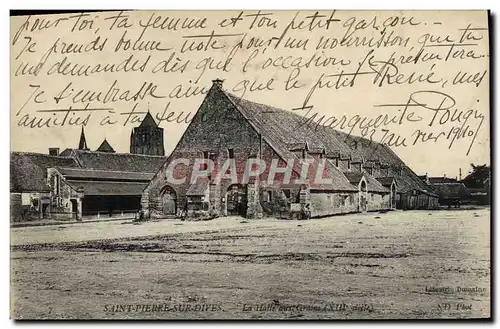 pour toi, ta femme et ton petit garçon. —
Je prends bonne note pour un nourrisson que tu
me demandes dès que l'occasion se présentera.
Je t'embrasse ainsi que le petit René, mes
amitiés à ta femme Marguerite Pougy
Janvier 1910
CARTAPHIL
Librairie Domaine
SAINT-PIERRE-SUR-DIVES. La Halle aux Grains (XIIIe siècle)
ND Phot